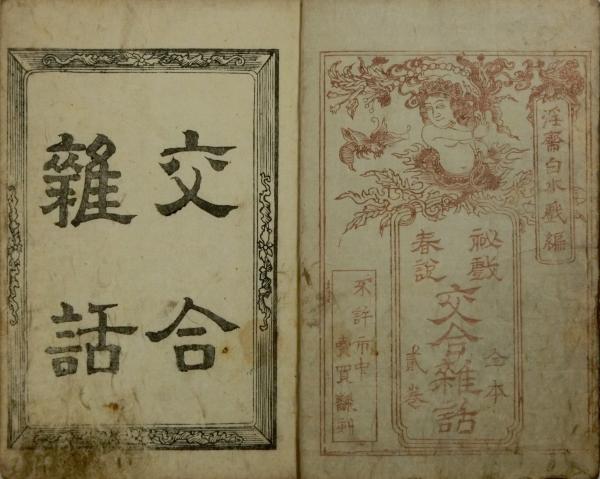 淫齋白水戯編
祕戲
春説
交合雜話
全本
貳卷
不許市中
賣買謙刻
交合
雜話